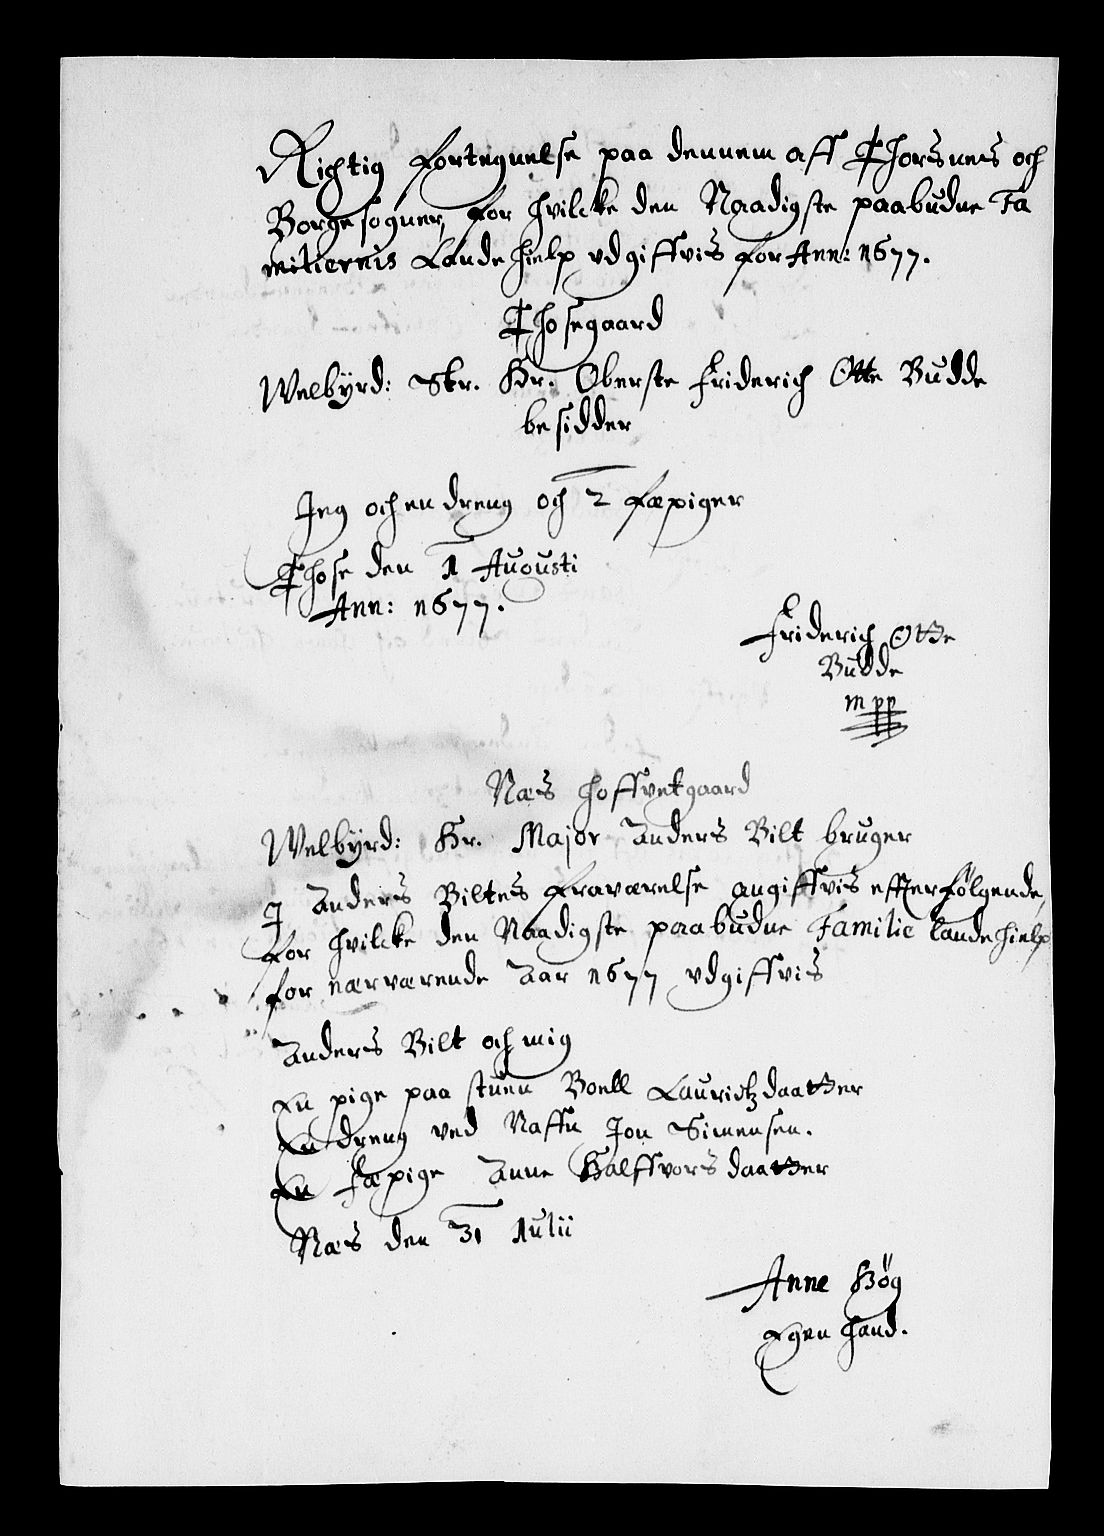 Richtig Fortegnelse paa dennem aff Thorsnes och
Borge sogner, for hvilcke den Naadigste paabudne Fa
milliernis Lande hielp udgiffvis for Ann: 1677.
Thosegaard
Welbÿrd: Str. Hr. Oberste Friderich Otte Budde
besidder
Jeg och en dreng och 2 fæpiger
Those den 1 Augusti
Ann: 1677.
Friderich Otte
Budde
mpp
Næs hoffvetgaard
Welbÿrd: Hr. Major Anders Bilt bruger
J Anders Biltes fraværelse angiffvis effterfølgende,
for hvilcke den Naadigste paabudne Familie landehielp
for nærværende Aar 1677 udgiffvis
Anders Bilt och mig
En pige paa stuen Boell Lauritzdaatter
En dreng ved Naffn Jon Simensen.
En fæpige Anne Halffvorsdaatter
Næs den 31 Julii
Anne Høg
Egen hand.